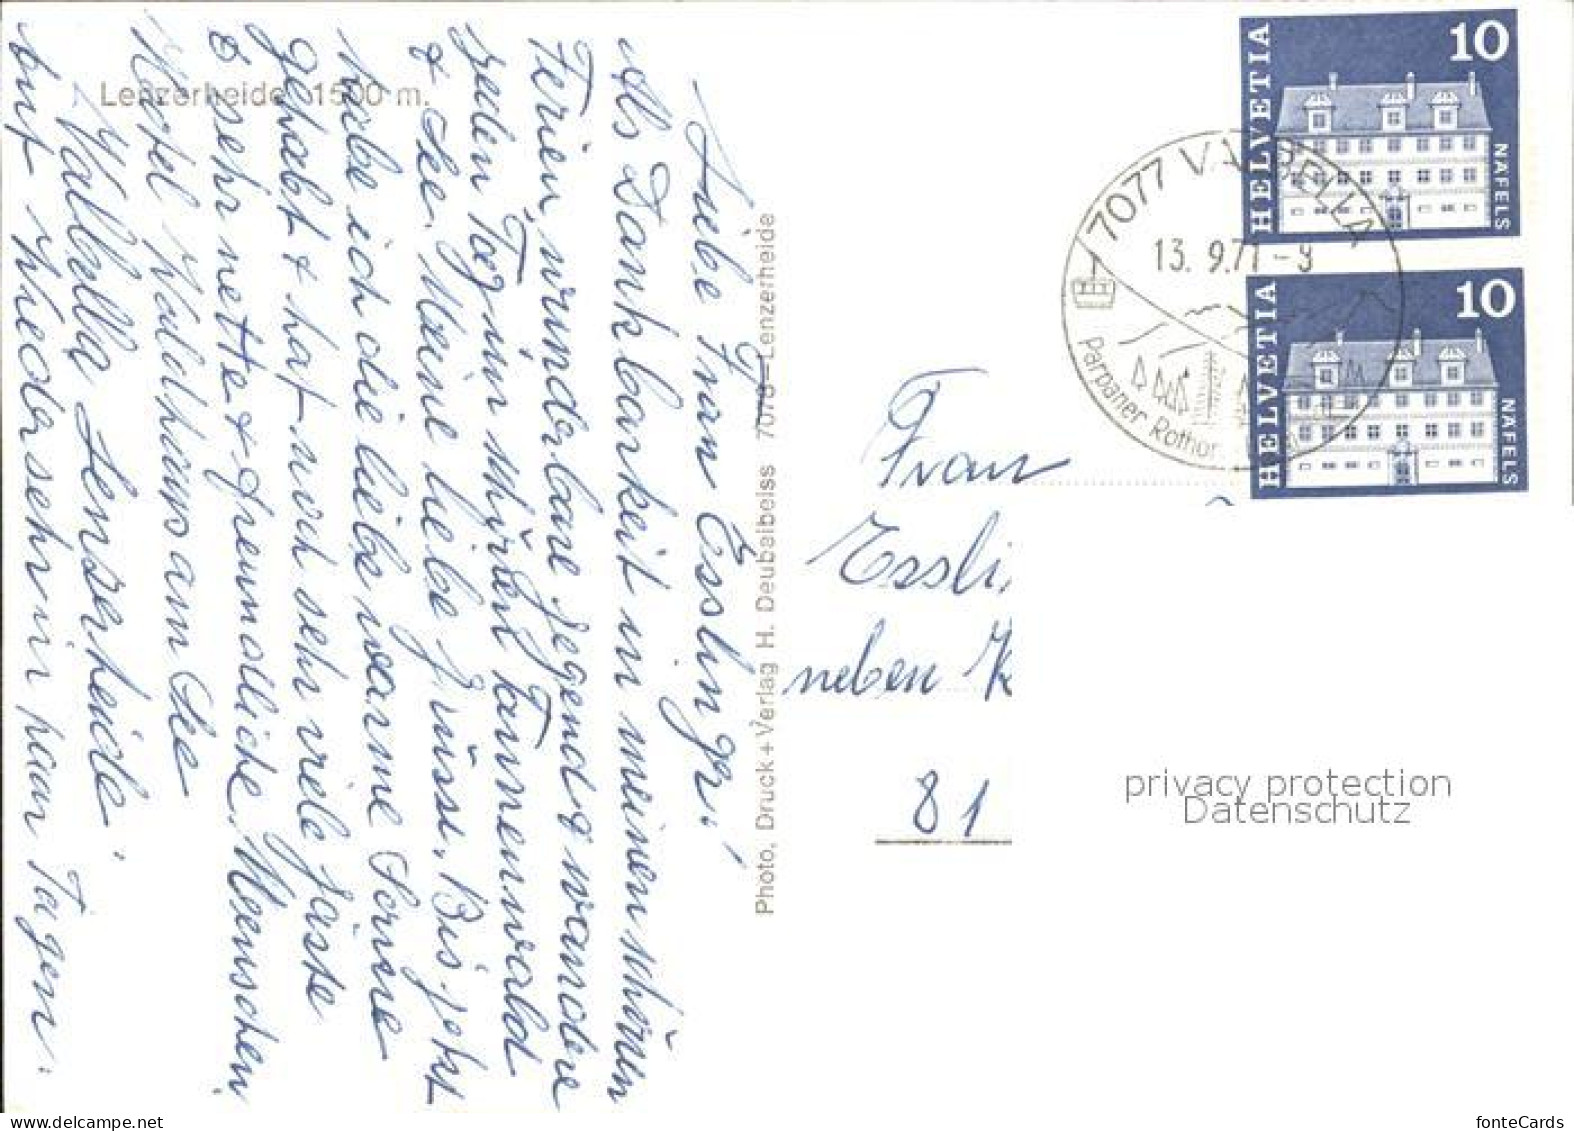 Lenzerheide 1500 m.
Liebe Frau Esslinger!
Als Dankbarkeit in meinen schönen
Ferien, wunderbare Gegend & wandere
jeden Tag im schönen Tannenwald
& See. Meine liebe Grüsse. Bis jetzt
habe ich die liebe warme Sonne
gehabt & hat noch sehr viele Gäste
& sehr nette & freundliche Menschen.
Hotel Waldhaus am See
Valbella Lenzerheide.
auf Wiedersehn in paar Tagen.
Photo, Druck + Verlag H. Deubelbeiss 7078 - Lenzerheide
HELVETIA 10 NÄFELS
7077 VALBELLA
13. 9.71 - 9
Parpaner Rothorn
HELVETIA 10 NÄFELS
Frau
Essli
neben K
81
privacy protection
Datenschutz
www.delcampe.net
fonteCards